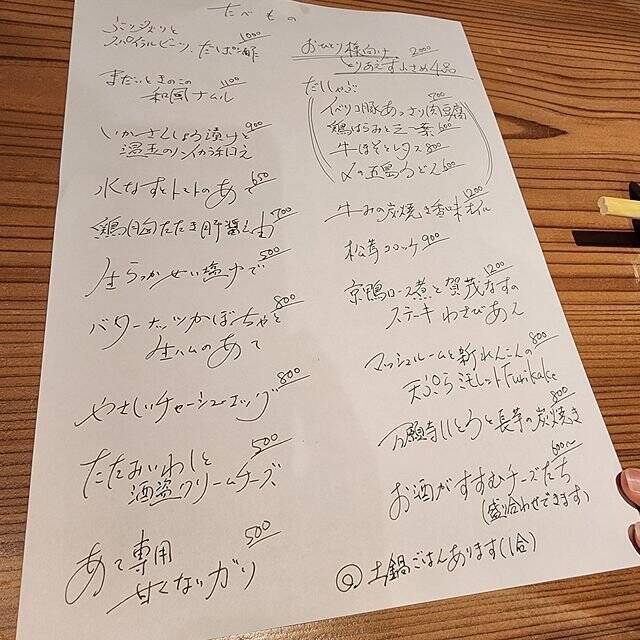 たべもの
スパイラルビーンズ、だしぽん酢 1000
まだいときのこの 1100
和風ナムル
いかさんしょう漬けと 900
温玉のツンカラ和え
水なすとトマトのあて 650
鶏胸たたき肝醤油 700
生らっかせい塩ゆで 500
バターナッツかぼちゃと 800
生ハムのあて
やさしいチャーシューエッグ 800
たたみいわしと 500
酒盗クリームチーズ
あて専用 500
甘くないガリ
おひとり様向け 2000
とりあえず小さめ4品
だししゃぶ
イベリコ豚あっさり肉豆腐 700
鶏はらみと三つ葉 600
牛ほほとレタス 800
〆の五島うどん 600
牛みの炭焼き香味オイル 1200
松茸コロッケ 900
京鴨ロース煮と賀茂なすの 1200
ステーキ わさびあえ
マッシュルームと新れんこんの 800
天ぷら ミモレットFurikake
万願寺とうと長芋の炭焼き 800
お酒がすすむチーズたち 600〜
(盛り合わせできます)
◎土鍋ごはんあります(1合)